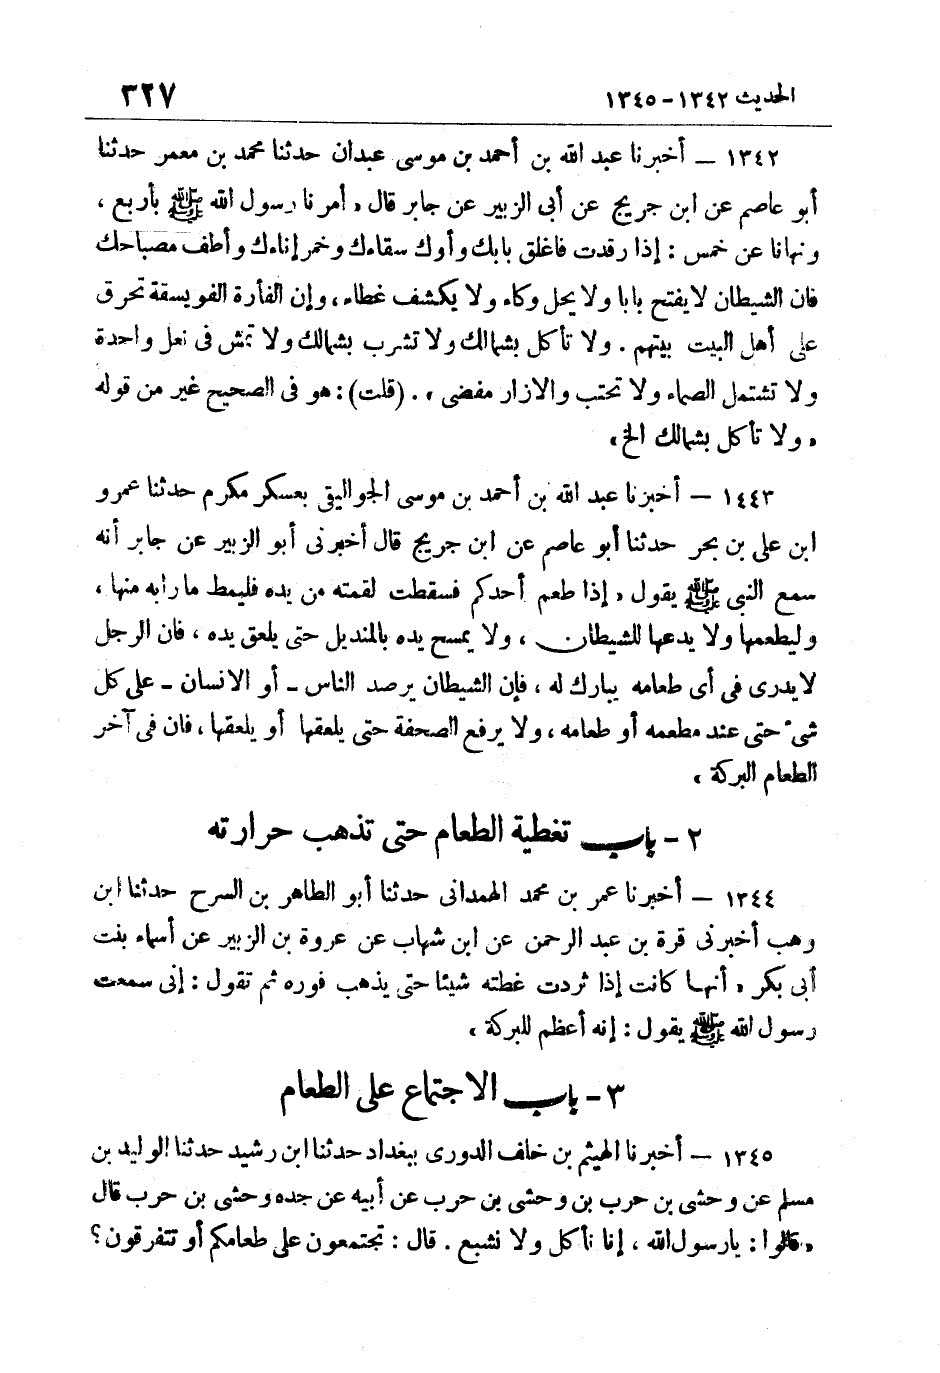 الحديث ١٣٤٢ - ١٣٤٥ ٣٢٧
١٣٤٢ — أخبرنا عبد الله بن أحمد بن موسى عبدان حدثنا محمد بن معمر حدثنا
أبو عاصم عن ابن جريج عن أبى الزبير عن جابر قال « أمرنا رسول الله ﷺ بأربع ،
ونهانا عن خمس : إذا رقدت فاغلق بابك وأوك سقاءك وخمر إناءك وأطف مصباحك
فان الشيطان لا يفتح بابا ولا يحل وكاء ولا يكشف غطاء ، وإن الفأرة الفويسقة تحرق
على أهل البيت بيتهم . ولا تأكل بشمالك ولا تشرب بشمالك ولا تمش فى نعل واحدة
ولا تشتمل الصماء ولا تحتب والازار مفضى » . (قلت) : هو فى الصحيح غير من قوله
« ولا تأكل بشمالك الخ »
١٤٤٣ — أخبرنا عبد الله بن أحمد بن موسى الجواليقى بعسكر مكرم حدثنا عمرو
ابن على بن بحر حدثنا أبو عاصم عن ابن جريج قال أخبرنى أبو الزبير عن جابر أنه
سمع النبى ﷺ يقول « إذا طعم أحدكم فسقطت لقمته من يده فليمط ما رابه منها ،
وليطعمها ولا يدعها للشيطان ، ولا يمسح يده بالمنديل حتى يلعق يده ، فان الرجل
لا يدرى فى أى طعامه يبارك له ، فإن الشيطان يرصد الناس - أو الانسان - على كل
شىء حتى عند مطعمه أو طعامه ، ولا يرفع الصحفة حتى يلعقها أو يلعقها ، فان فى آخر
الطعام البركة »
٢ - باب تغطية الطعام حتى تذهب حرارته
١٣٤٤ — أخبرنا عمر بن محمد الهمدانى حدثنا أبو الطاهر بن السرح حدثنا ابن
وهب أخبرنى قرة بن عبد الرحمن عن ابن شهاب عن عروة بن الزبير عن أسماء بنت
أبى بكر « أنها كانت إذا ثردت غطته شيئا حتى يذهب فوره ثم تقول : إنى سمعت
رسول الله ﷺ يقول : إنه أعظم للبركة »
٣ - باب الاجتماع على الطعام
١٣٤٥ — أخبرنا الهيثم بن خلف الدورى ببغداد حدثنا ابن رشيد حدثنا الوليد بن
مسلم عن وحشى بن حرب بن وحشى بن حرب عن أبيه عن جده وحشى بن حرب قال
« قالوا : يا رسول الله ، إنا نأكل ولا نشبع . قال : تجتمعون على طعامكم أو تتفرقون ؟